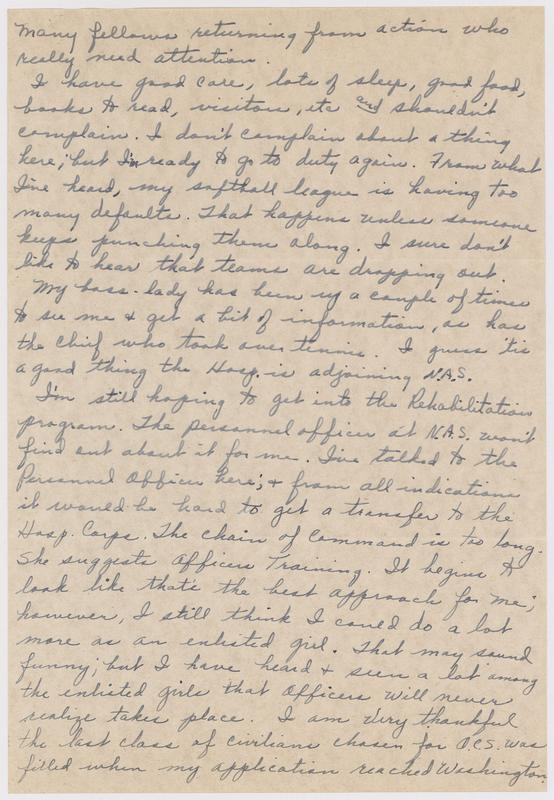 many fellows returning from action who
really need attention.
I have good care, lots of sleep, good food,
books to read, visitors, etc and shouldn't
complain. I don't complain about a thing
here; but I'm ready to go to duty again. From what
I've heard, my softball league is having too
many defaults. That happens unless someone
keeps punching them along. I sure don't
like to hear that teams are dropping out.
My boss-lady has been up a couple of times
to see me & get a bit of information, as has
the Chief who took over tennis. I guess 'tis
a good thing the Hosp. is adjoining N.A.S.
I'm still hoping to get into the Rehabilitation
program. The personnel officer at N.A.S. won't
find out about it for me. I've talked to the
Personnel Officer here; & from all indications
it would be hard to get a transfer to the
Hosp. Corps. The chain of Command is too long.
She suggests Officers Training. It begins to
look like that's the best approach for me;
however, I still think I could do a lot
more as an enlisted girl. That may sound
funny; but I have heard & seen a lot among
the enlisted girls that Officers will never
realize takes place. I am very thankful
the last class of civilians chosen for O.C.S. was
filled when my application reached Washington.